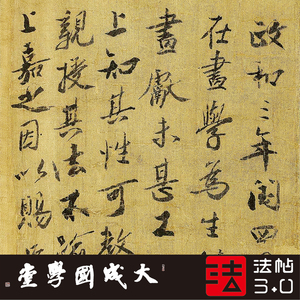 政和三年閏四
在畫學為生
畫獻未甚工
上知其性可教
親授其法不踰
上嘉之因以賜
大成國學堂
法
法帖
3.0